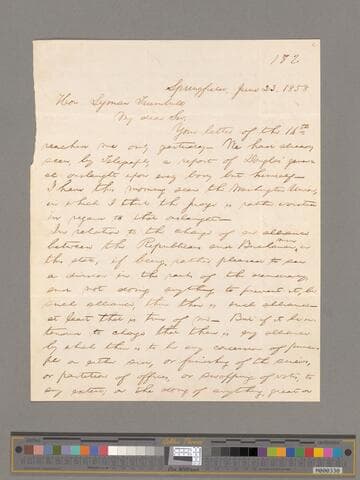 182
Springfield, June 23. 1858
Hon Lyman Trumbull
My dear Sir,
Your letter of the 16th
reached me only yesterday. We had already
seen, by Telegraph, a report of Douglas' general
onslaught upon every body but himself.
I have this morning seen the Washington Union,
in which I think the Judge is rather worsted
in regard to that onslaught.
In relation to the charge of an alliance
between the Republicans and Buchanan men in
this state, if being rather pleased to see
a division in the ranks of the democracy,
and not doing anything to prevent it, be
such alliance, then there is such alliance
at least that is true of me. But if it be in-
tended to charge that there is any alliance
by which there is to be any concession of princi-
ple on either side, or furnishing of the sinews,
or partition of offices, or swopping of votes, to
any extent; or the doing of anything, great or
R000330